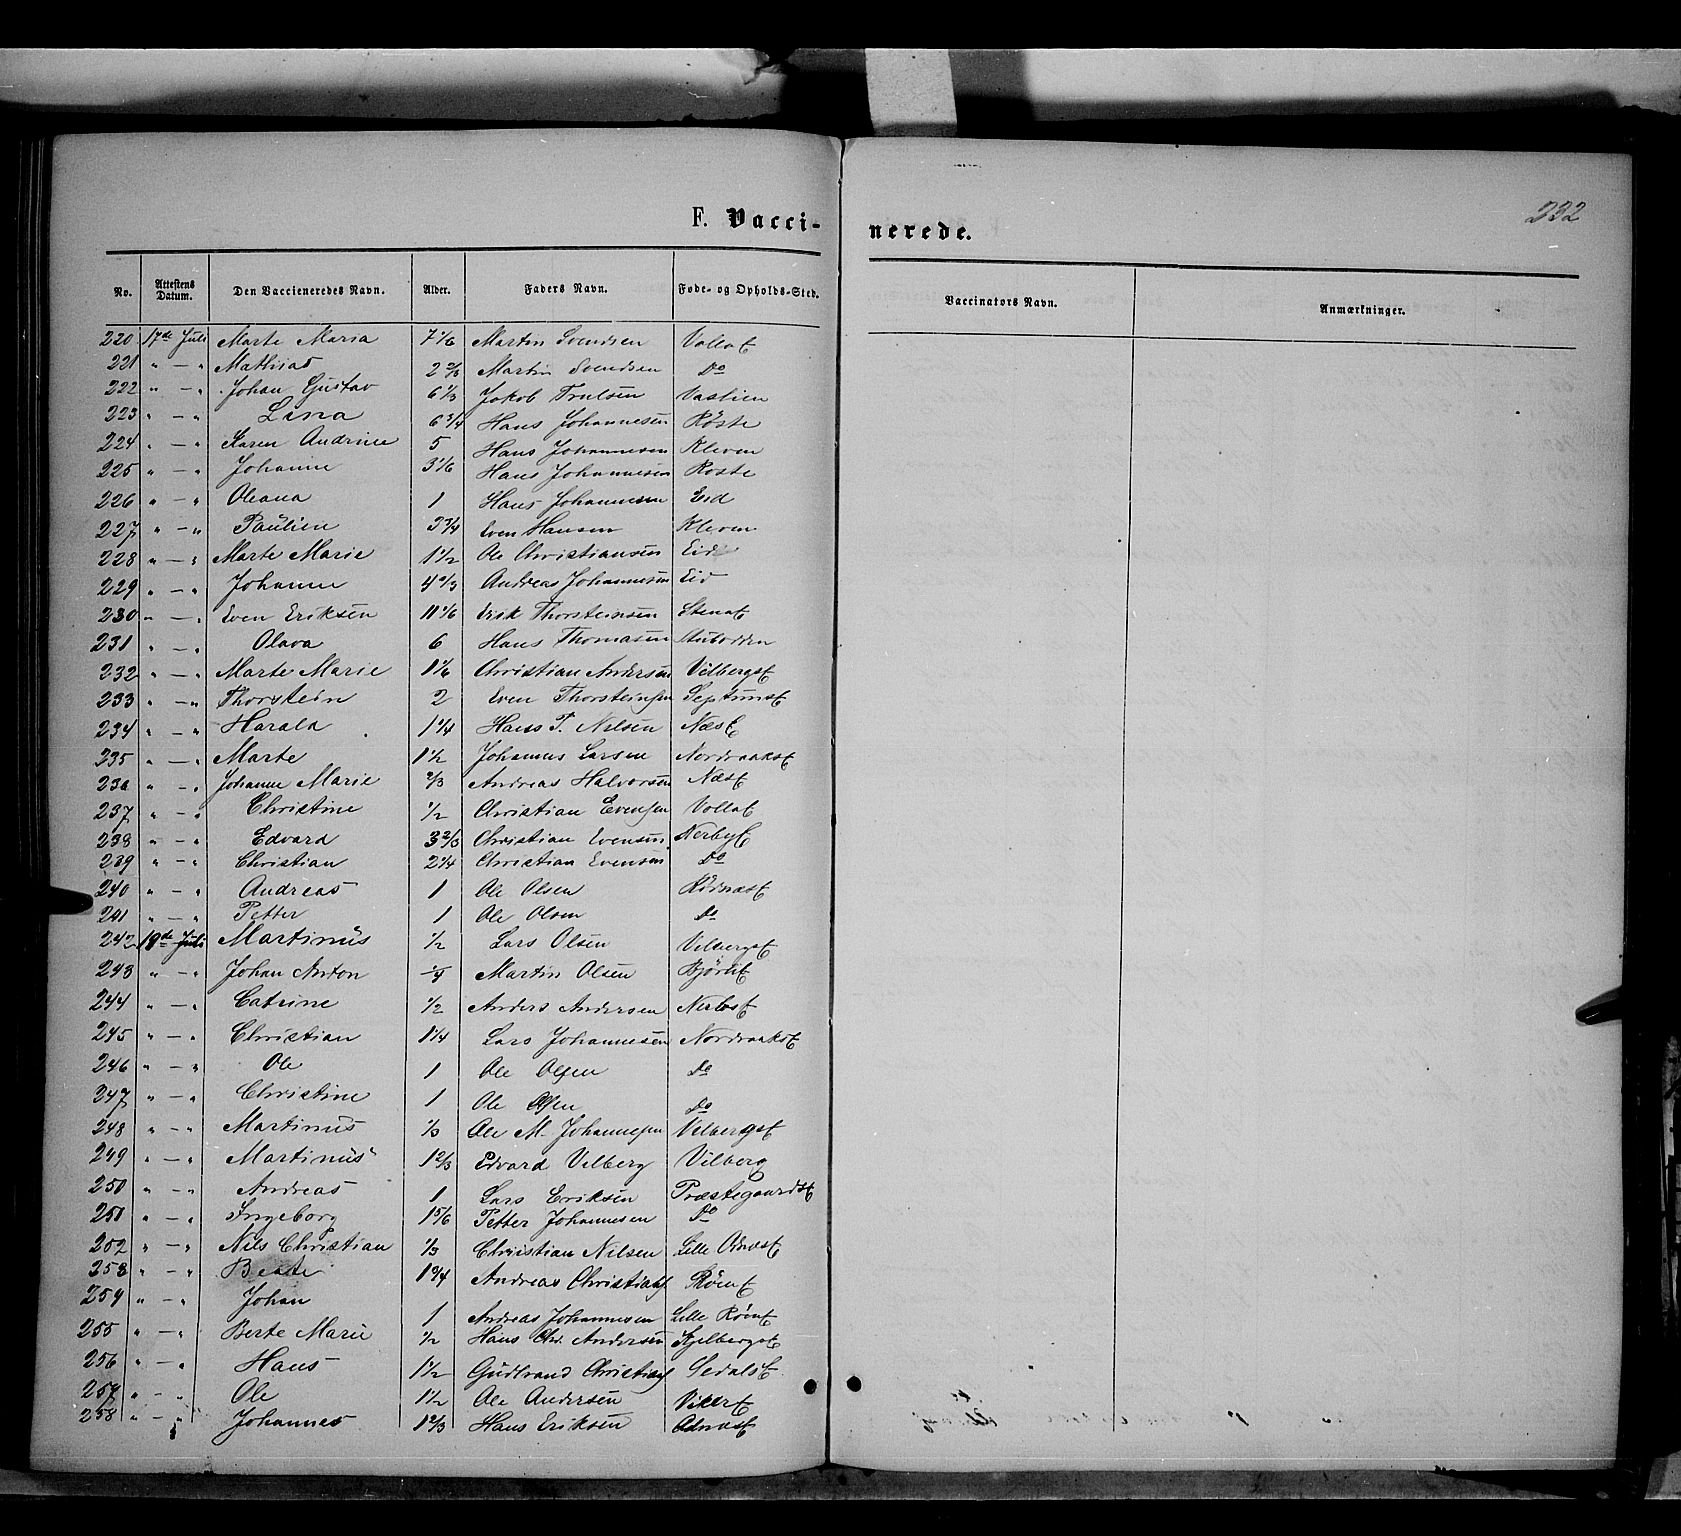 232
F. Vacci-nerede.
No. Attestens Datum. Den Vaccieneredes Navn. Alder. Faders Navn. Føde- og Opholds-Sted. Vaccinators Navn. Anmærkninger.
220 17de Juli Marte Maria 7 1/6 Martin Svendsen Vollat
221 " — " Mathias 2 2/3 Martin Svendsen Do
222 " — " Johan Gustav 6 1/3 Jakob Trulsen Vastien
223 " — " Lina 6 3/4 Hans Johannesen Røste
224 " — " Karen Andrine 5 Hans Johannesen Kleven
225 " — " Johanne 3 1/6 Hans Johannesen Røste
226 " — " Oleana 1 Hans Johannesen Eid
227 " — " Paulien 3 3/4 Even Hansen Kleven
228 " — " Marte Marie 1 1/2 Ole Christiansen Eid
229 " — " Johanne 4 2/3 Andreas Johannesen Eid
230 " — " Even Eriksen 11 1/6 Erik Thorsteinsen Stenat
231 " — " Olava 6 Hans Thomasen
232 " — " Marte Marie 1 1/6 Christian Andersen Vilbergst
233 " — " Thorstein 2 Even Thorsteinsen
234 " — " Harald 1 1/4 Hans P. Nilsen Næst
235 " — " Marte 1 1/2 Johannes Larsen Nordraakst
236 " — " Johanne Marie 2/3 Andreas Halvorsen Næst
237 " — " Christine 1/2 Christian Evensen Vollat
238 " — " Edvard 3 2/3 Christian Evensen Nerbyt
239 " — " Christian 2 1/4 Christian Evensen Do
240 " — " Andreas 1 Ole Olsen
241 " — " Petter 1 Ole Olsen Do
242 18de Juli Martinus 1/2 Lars Olsen Vilbergst
243 " — " Johan Anton Martin Olsen
244 " — " Catrine 1/2 Anders Andersen
245 " — " Christian 1 1/4 Lars Johannesen Nordraakst
246 " — " Ole 1 Ole Olsen Do
247 " — " Christine 1 Ole Olsen Do
248 " — " Martinus 1/3 Ole M. Johannesen Vilbergst
249 " — " Martinus 1 2/3 Edvard Vilberg Vilberg
250 " — " Andreas 1 Lars Eriksen Præstegaardst
250 " — " Ingeborg 1 5/6 Petter Johannesen Do
252 " — " Nils Christian 1/3 Christian Nilsen Lille Odnæst
253 " — " Beate 1 3/4 Andreas Christians Rønt
254 " — " Johan 1 Andreas Johannesen Lille Rønt
255 " — " Berte Marie 1/2 Hans Chr. Andersen Kjelbergst
256 " — " Hans 1 1/2 Gudbrand Christians Sedalst
257 " — " Ole 1 1/2 Ole Andersen Vikert
258 " — " Johannes 1 2/3 Hans Eriksen Odnæst